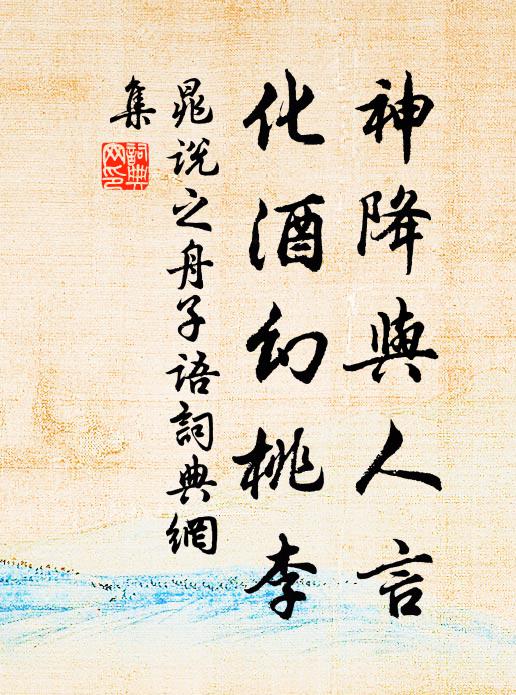 神降與人言
化酒幻桃李
晁說之舟子語詞典網
集
詞典網印